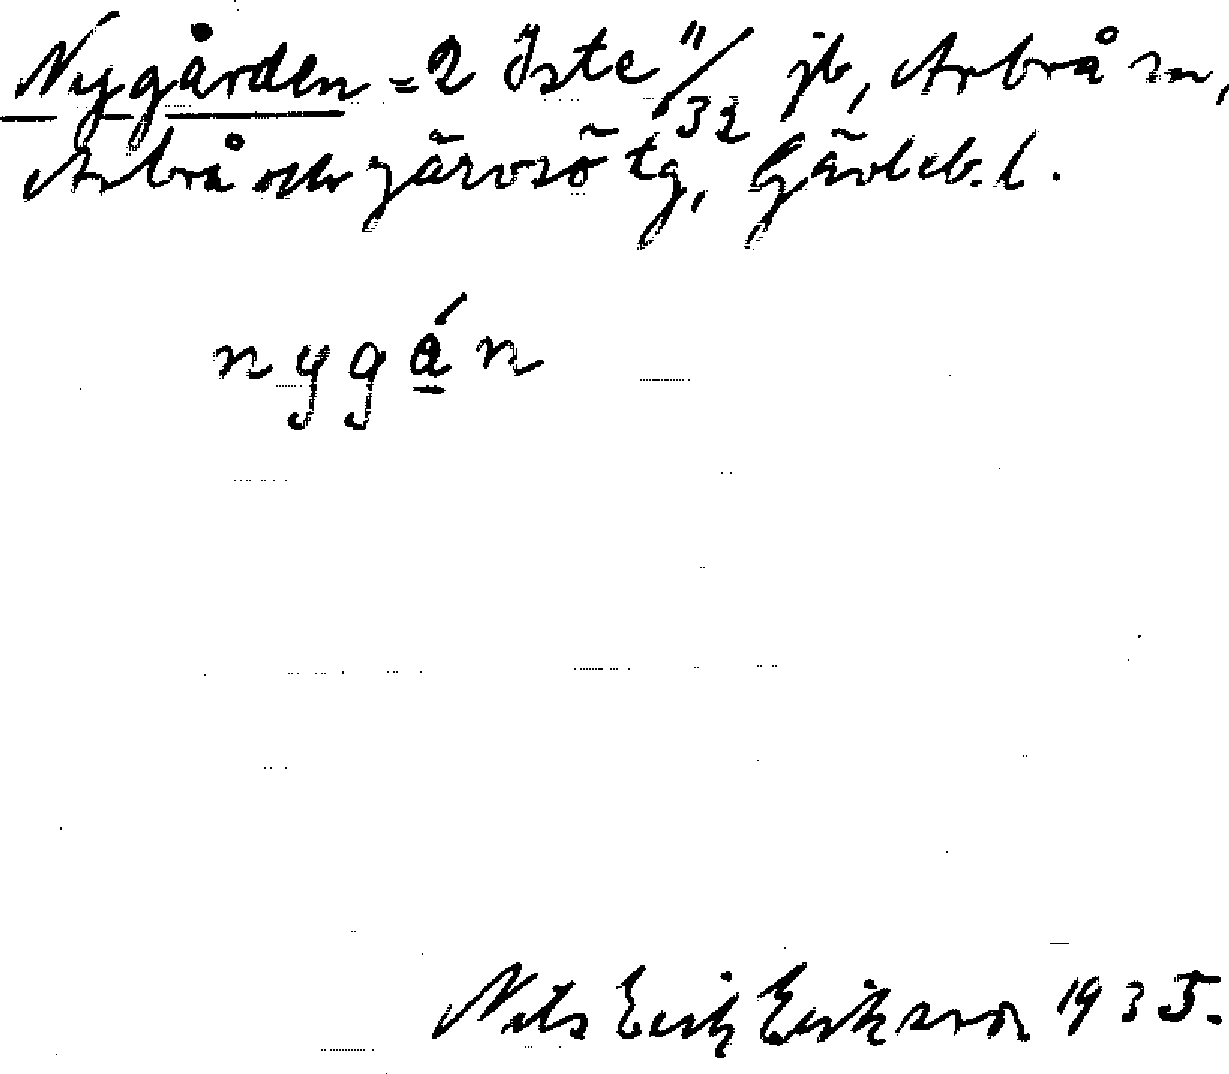 Nygården = 2 Iste 11/32 jb, Arbrå sn,
Arbrå och Järvsö tg, Gävleb. l.
nygá̱n
Nils Erik Eriksson 1935.